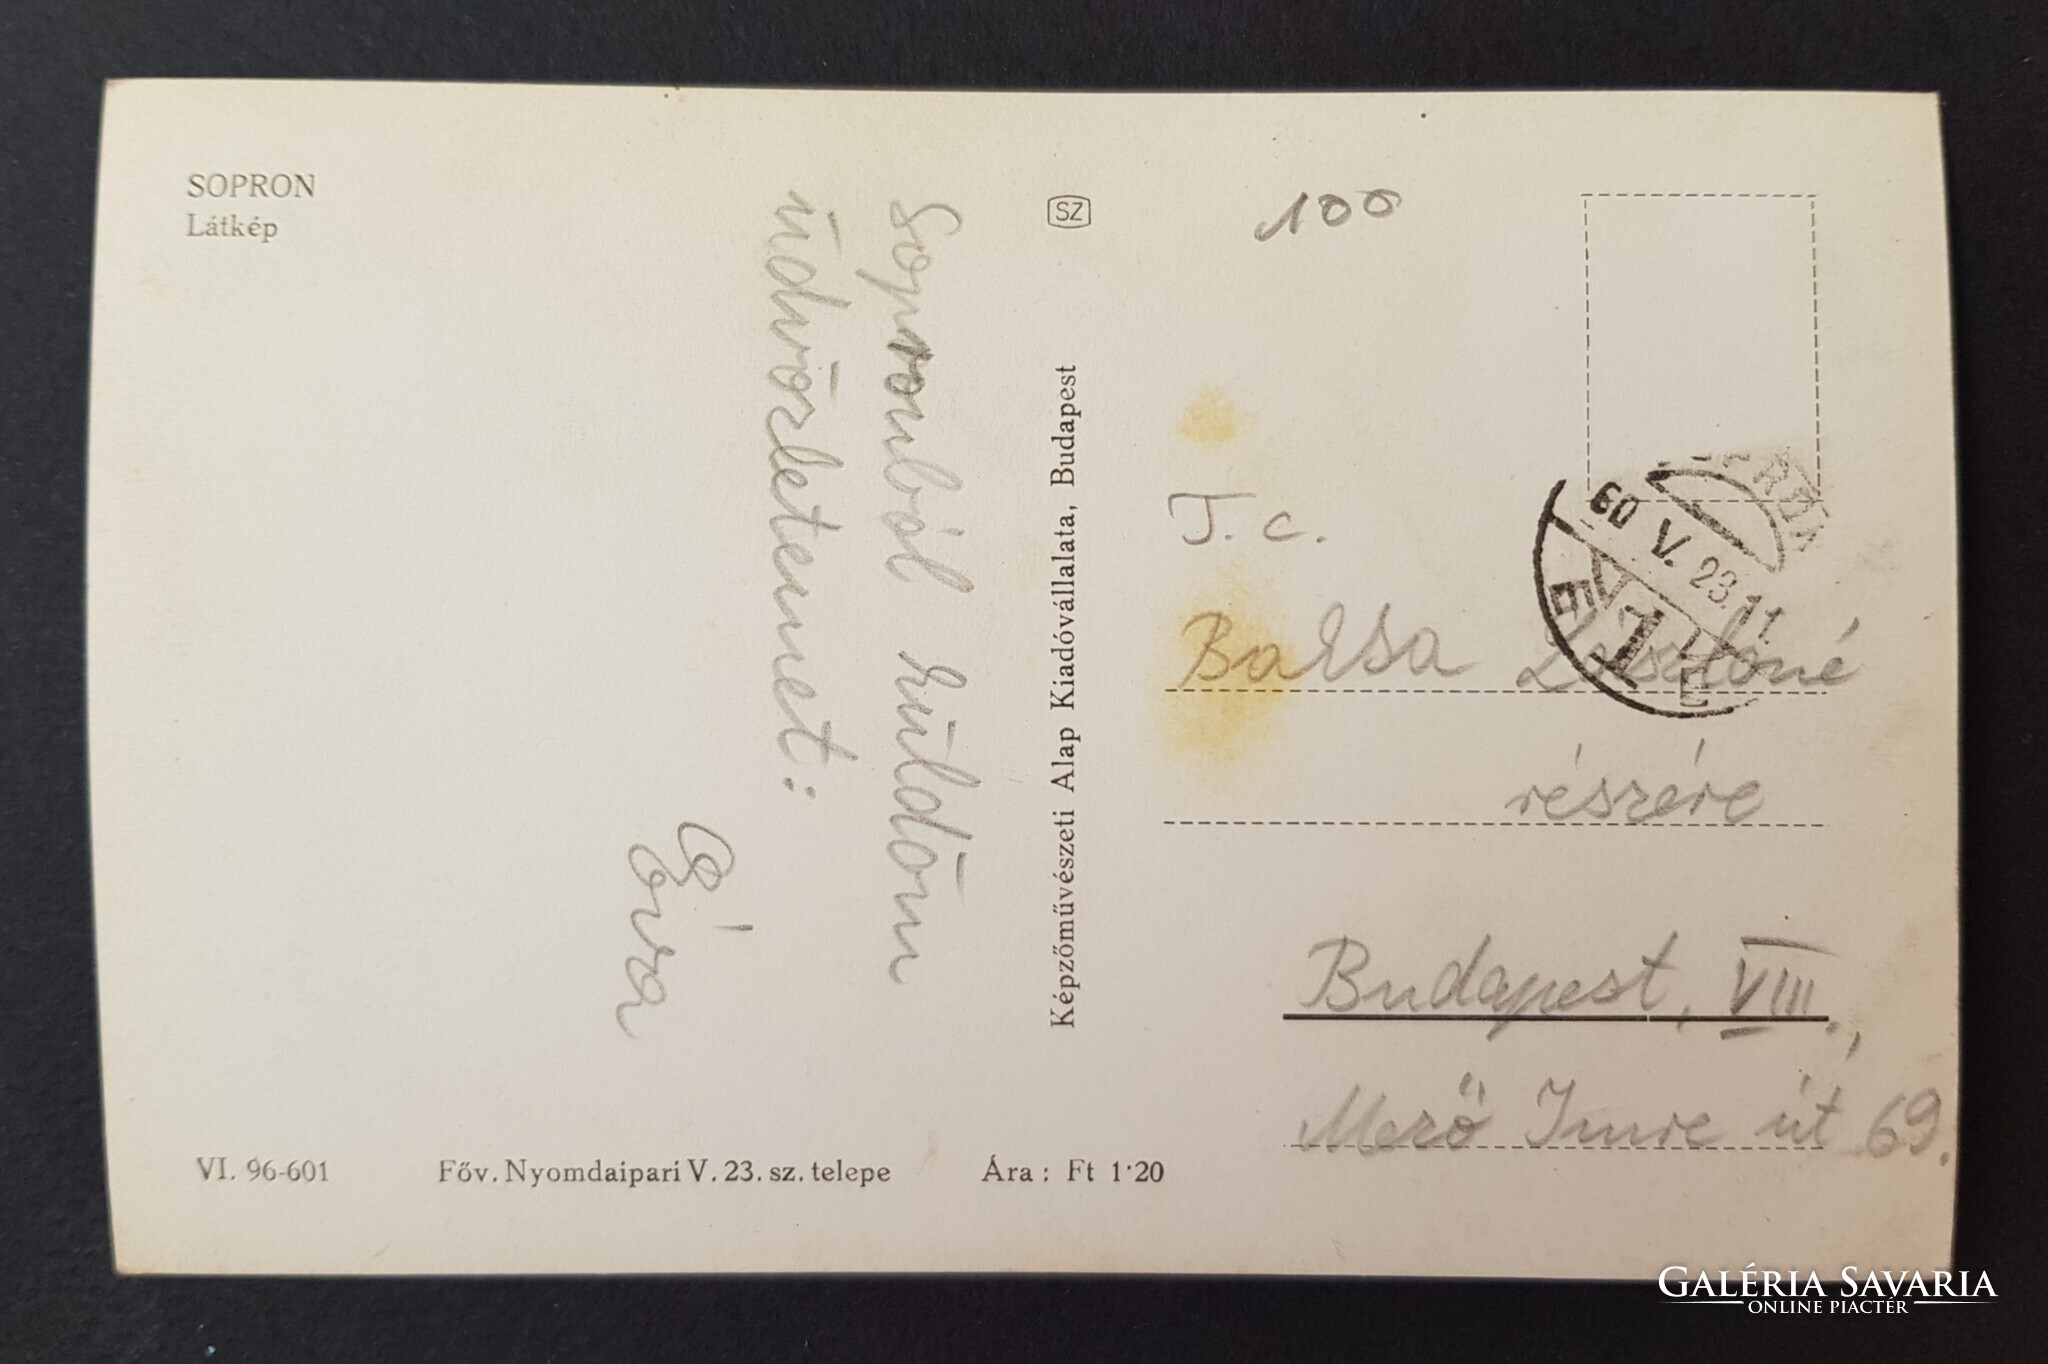 SOPRON
Látkép
Sopronból küldöm
üdvözletemet:
Éva
VI. 96-601
Főv. Nyomdaipari V. 23. sz. telepe
Ára: Ft 1·20
Képzőművészeti Alap Kiadóvállalata, Budapest
SZ
100
60 V. 23. 11
E 1 E
T. c.
Balsa Lászlóné
részére
Budapest, VIII.,
Mező Imre út 69.
GALÉRIA SAVARIA
ONLINE PIACTÉR